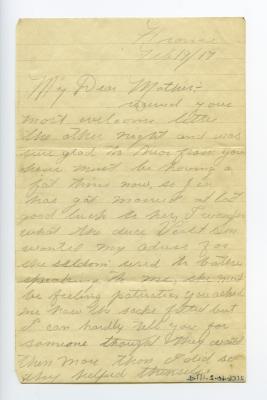 France
Feb 19/17
My Dear Mother:-
received your
most welcome letter
the other night and was
sure glad to hear from you
must be having a
fat time now, so
has got married at last
good luck to her, I wonder
what the duce
wanted my adress for
she seldom used to bother
speaking to me, she must
be feeling you asked
me how the socks fitted but
I can hardly tell you for
someone thought they would
them more than I did so
they helped themselves.